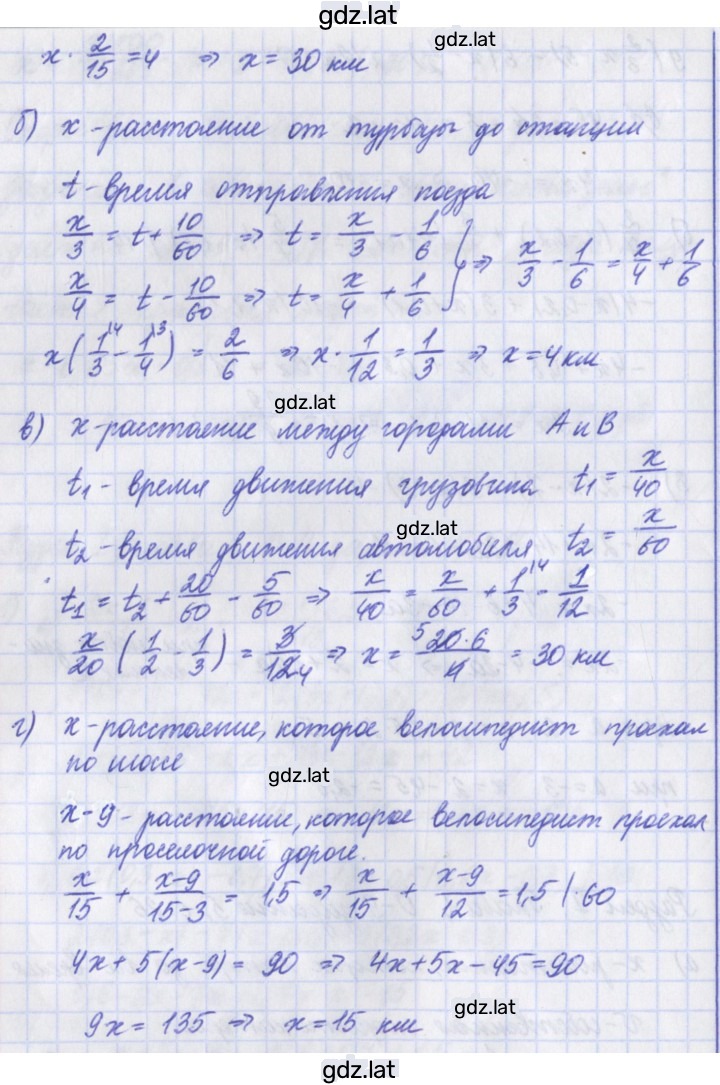 gdz.lat
x · 2/15 = 4 ⇒ x = 30 км
gdz.lat
б) x - расстояние от турбазы до станции
t - время отправления поезда
gdz.lat
x/3 = t + 10/60 ⇒ t = x/3 - 1/6
x/4 = t - 10/60 ⇒ t = x/4 + 1/6 } ⇒ x/3 - 1/6 = x/4 + 1/6
x(1/3^\4 - 1/4^\3) = 2/6 ⇒ x · 1/12 = 1/3 ⇒ x = 4 км
gdz.lat
в) x - расстояние между городами А и В
t1 - время движения грузовика t1 = x/40
gdz.lat
t2 - время движения автомобиля t2 = x/60
t1 = t2 + 20/60 - 5/60 ⇒ x/40 = x/60 + 1/3^\4 - 1/12
x/20 (1/2 - 1/3) = 3/12 4 ⇒ x = 5 20·6/4 = 30 км
gdz.lat
г) x - расстояние, которое велосипедист проехал
по шоссе
gdz.lat
x-9 - расстояние, которое велосипедист проехал
по проселочной дороге.
x/15 + x-9/15-3 = 1,5 ⇒ x/15 + x-9/12 = 1,5 | · 60
4x + 5(x-9) = 90 ⇒ 4x + 5x - 45 = 90
gdz.lat
9x = 135 ⇒ x = 15 км
gdz.lat